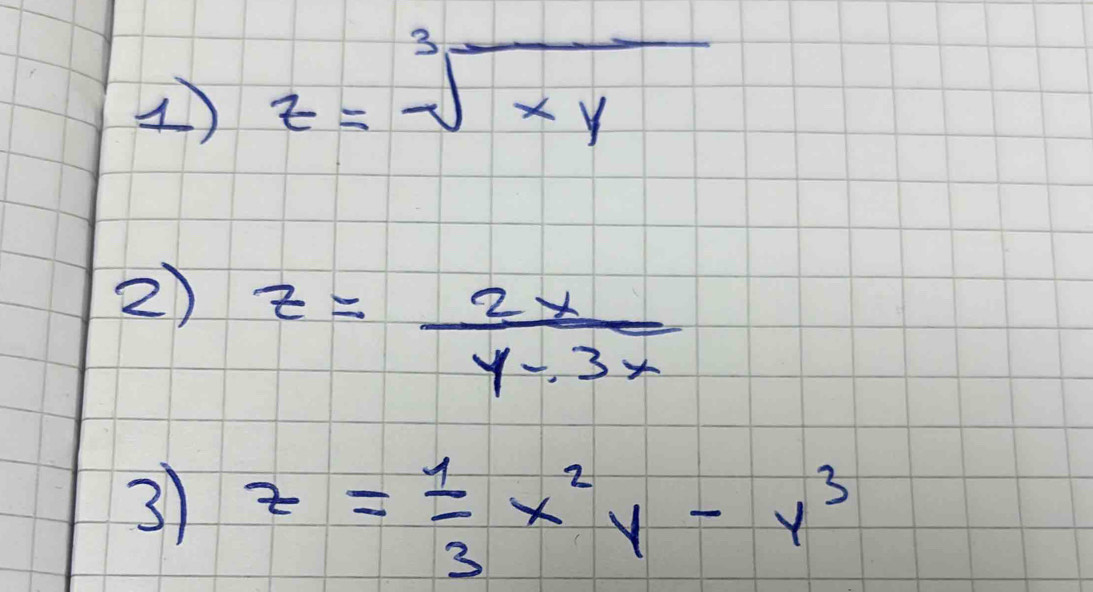 1) z = ∛(xy)
2) z = 2x / (y - 3x)
3) z = 1/3 x² y - y³